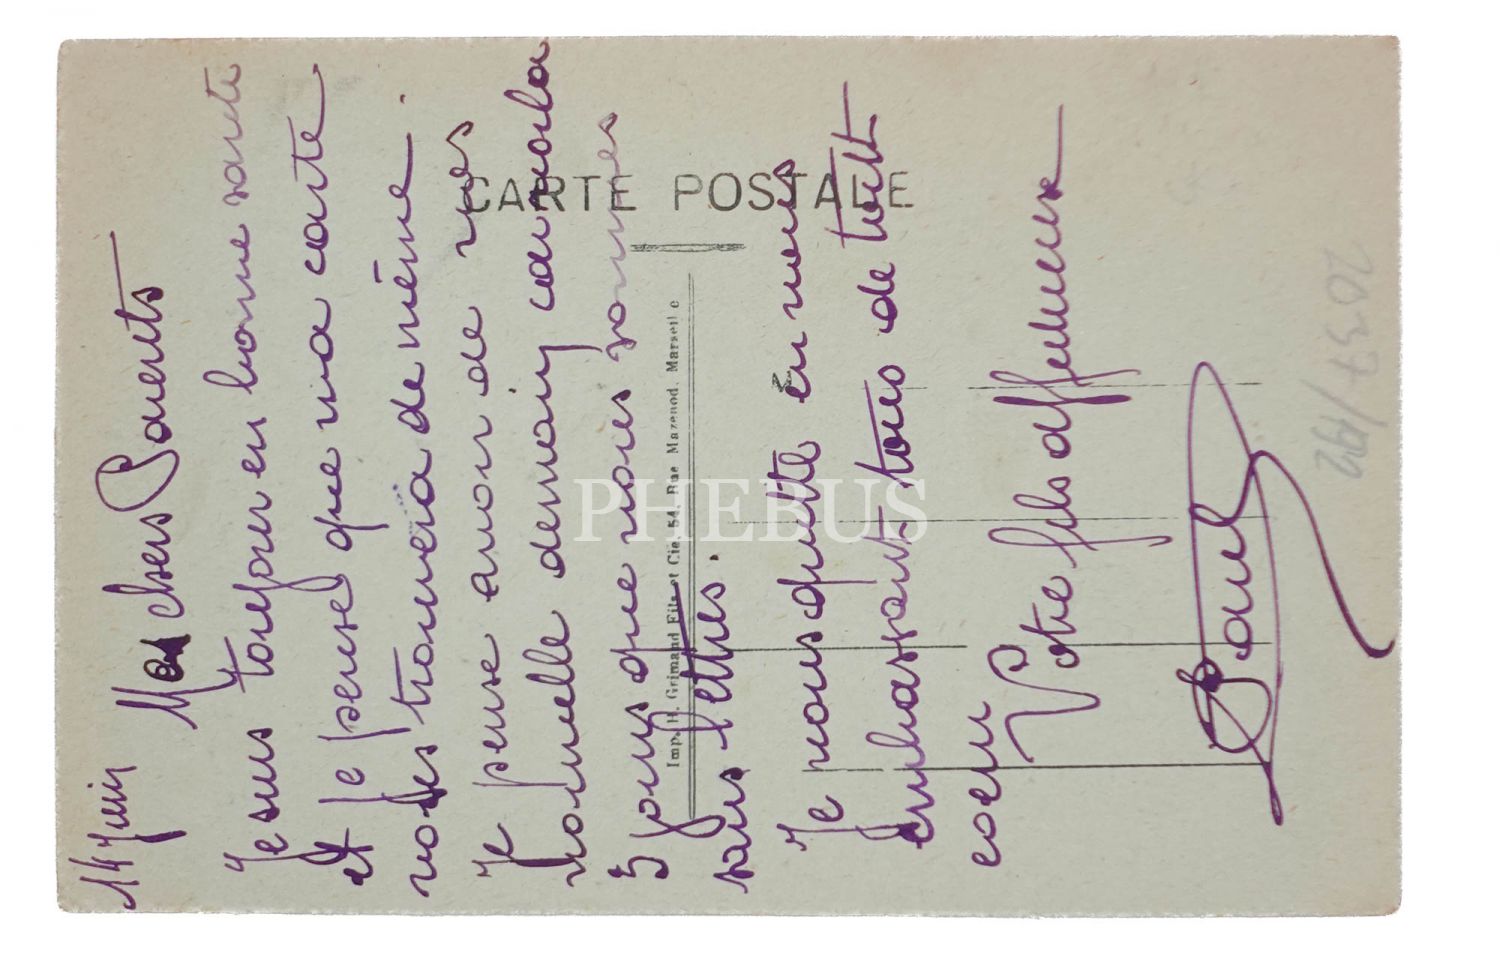 14 Juin Mes chers Parents
Je suis toujours en bonne sante
et je pense que ma carte
vous trouvera de même.
Je pense avoir de vos
nouvelle demain car voila
5 jours que nous sommes
sans lettres.
Je vous quitte en vous
embrassant tous de tout
coeur
Votre fils affectueux
Paul
CARTE POSTALE
Imp. H. Grimaud Fils et Cie, 54, Rue Mazenod, Marseille
PHEBUS